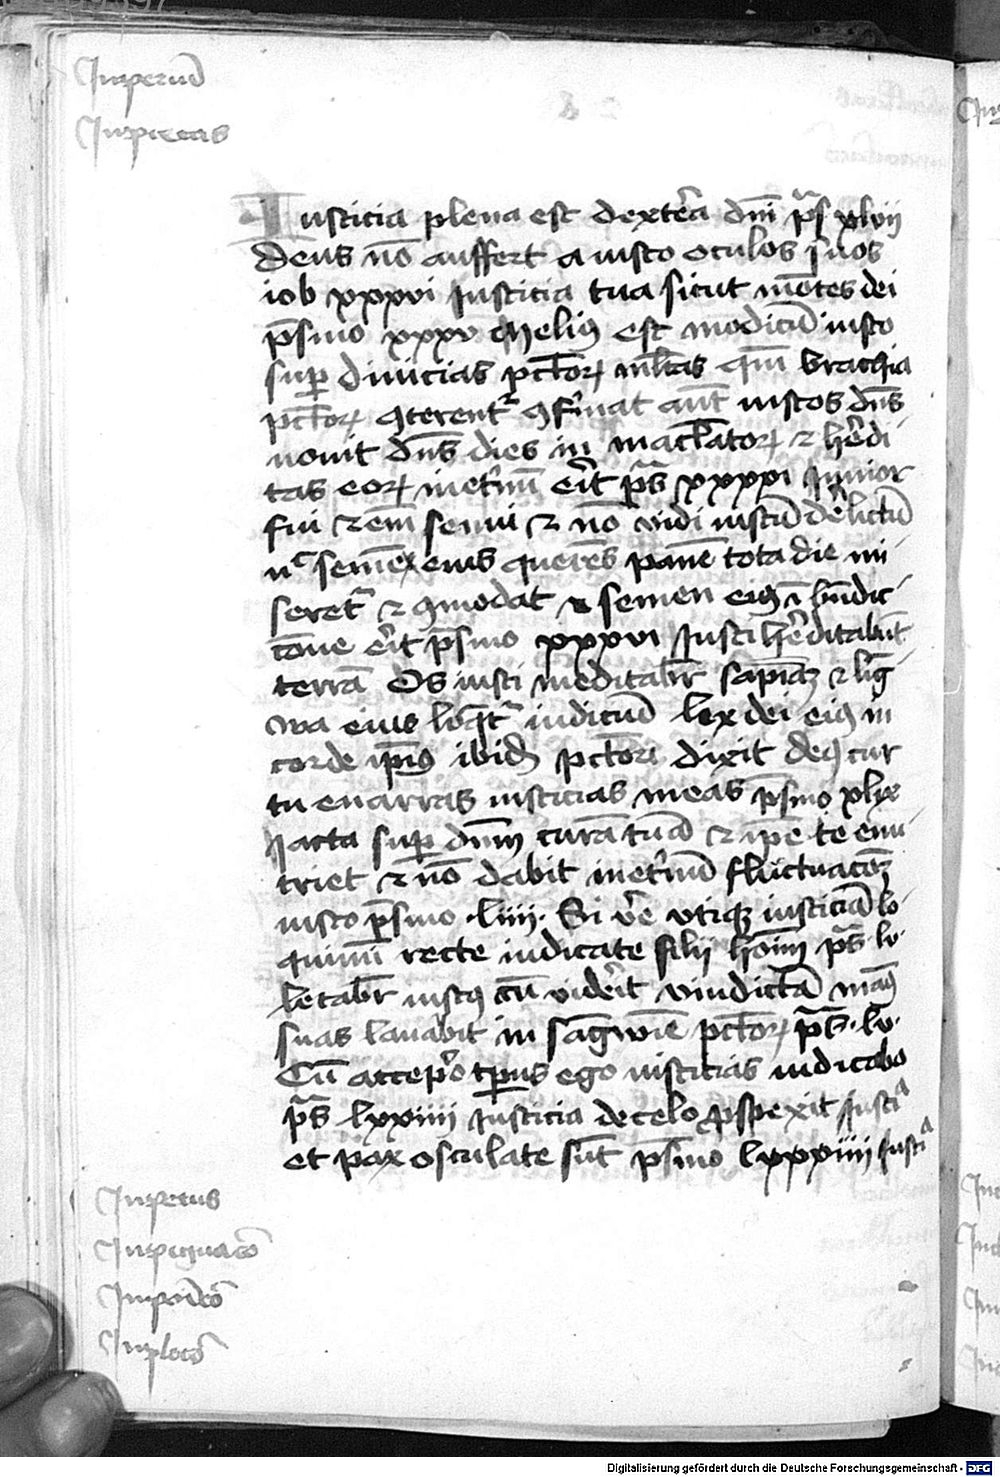 Imperiu͞
Impietas
Iusticia plena est dext͛a dn͞i p͞s xlvij
deus no͞ auffert a iusto oculos suos
iob xxxvi Iusticia tua sicut mo͞tes dei
p͞smo xxxv Melius est modicu͞ iusto
sup diuicias pct͞or ml͞tas qm͞ brachia
pct͞or ꝯterent͛ ꝯfirmat aut͞ iustos dn͞s
nouit dn͞s dies in mac͞lator ⁊ h͛edi
tas eor inet͛nu͞ e͛it p͞s xxxvi Iunior
fui ⁊ em͞ senui ⁊ no͞ vidi iustu͞ de͛lictu͞
n͛c seme͞ eius quere͞s pane͞ tota die mi
seret͛ ⁊ ꝯmodat semen eiꝰ i͞ bn͞dic
co͞ne e͛it p͞smo xxxvi Iusti h͛editabu͞t
terra͞ Os iusti meditab͛r sapia͞ ⁊ li͞g
wa eius loqt͛ iudiciu͞ lex dei eiꝰ in
corde ip͞iꝰ ibid͞ pct͞ori dixit deꝰ cur
tu enarras iusticias meas p͞smo xlix
Iacta sup dn͞m cura͞ tua͞ ⁊ ip͞e te enu
triet ⁊ no͞ dabit inet͛nu͞ fluctuaco͞e͞
iusto p͞smo ·liiii· Si v͛e vtiqꝫ iusticia͞ lo
quimi͞ recte iudicate filij ho͞im p͞s· lv·
letab͛r iustꝰ cu͞ vid͛eit vindicta͞ man͞ꝰ
suas lauabit in sa͞gwi͞e pct͞or p͞s· lv·
Cu͞ accep͛o tp͞us ego iusticias iudicabo
p͞s lxxiiii Iusticia de celo ꝓspexit Iusti͛a
et pax osculate su͞t p͞smo lxxxiiii Iusti͛a
Impetus
Impeticio͞
Imploco͞